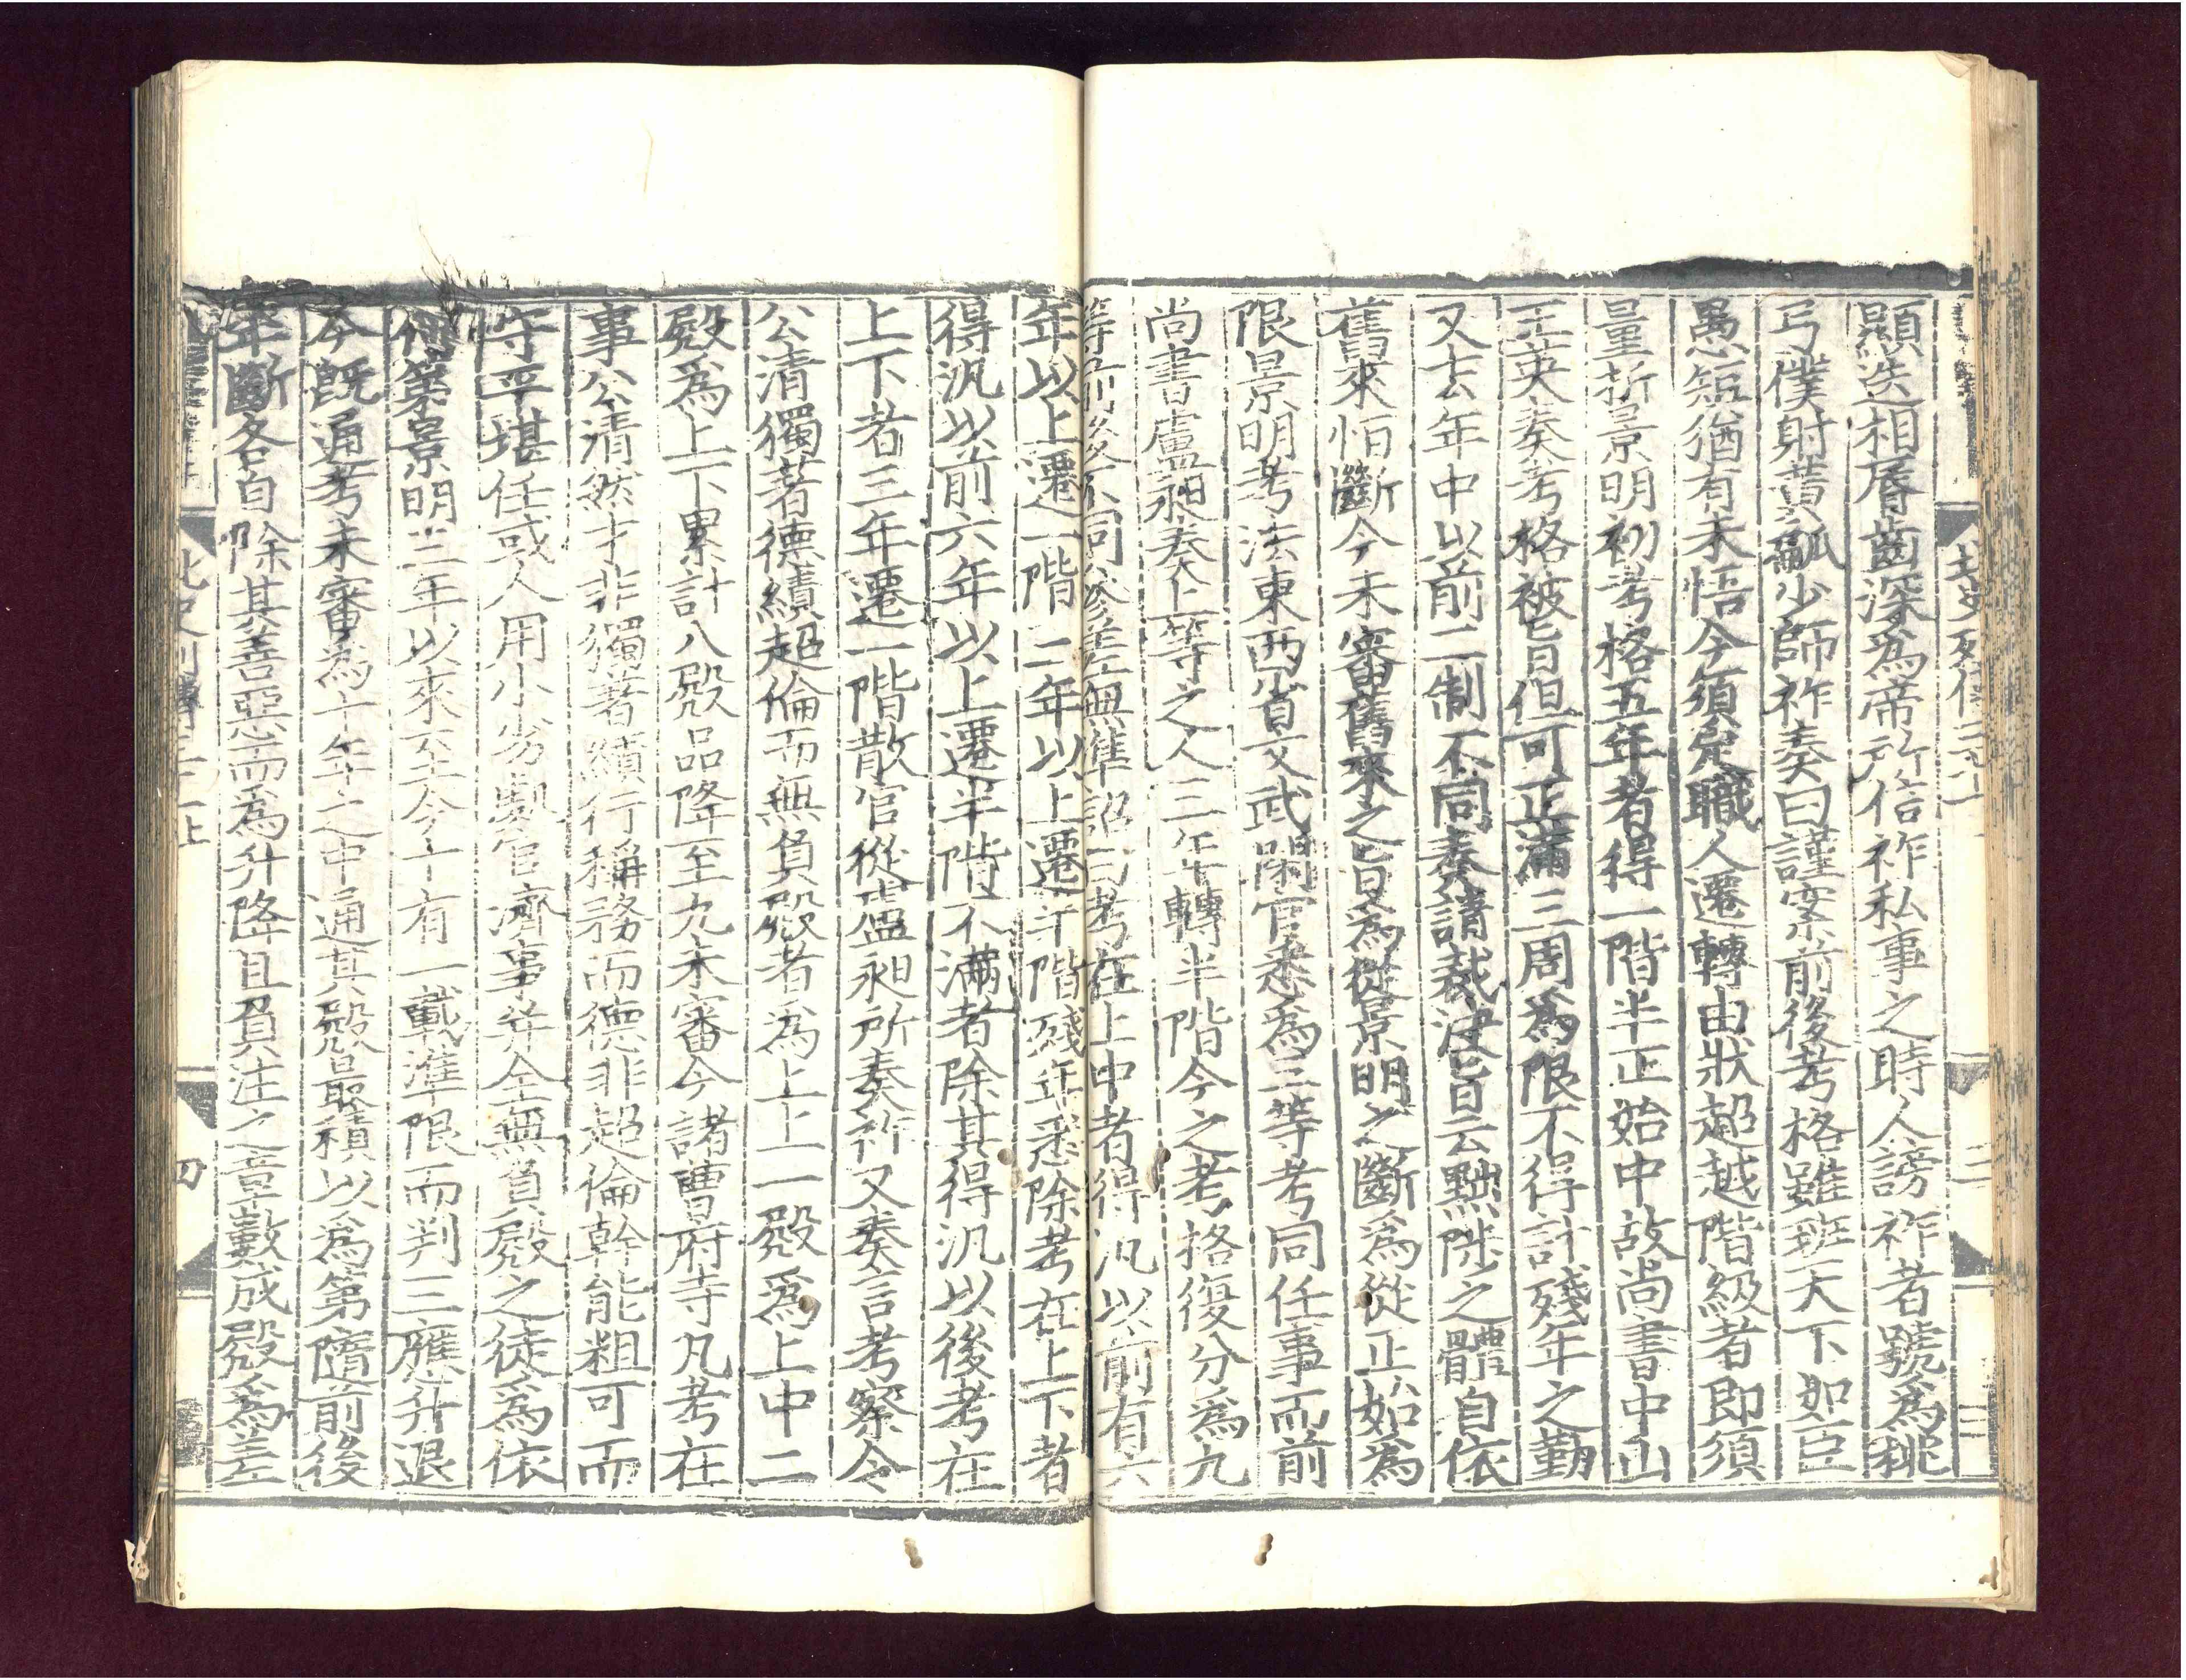 顯迭相脣齒深爲帝所信祚私事之時人謗祚者號爲桃
弓僕射黃𤬛少師祚奏曰謹案前後考格雖班天下如臣
愚短猶有未悟今須定職人遷轉由狀超越階級者即須
量折景明初考格五年者得一階半正始中故尚書中山
王英奏考格被旨但可正滿三周爲限不得計殘年之勤
又去年中以前二制不同奏請裁決旨云黜陟之體自依
舊來恒斷今未審舊來之旨爲從景明之斷爲從正始爲
限景明考法東西省文武閑官悉爲三等考同任事而前
尚書盧昶奏上等之人三年轉半階今之考格復分爲九
等前後不同參差無準詔曰考在上中者得汎以前有六
年以上遷一階三年以上遷半階殘年悉除考在上下者
得汎以前六年以上遷半階不滿者除其得汎以後考在
上下者三年遷一階散官從盧昶所奏祚又奏言考察令
公清獨著德績超倫而無負殿者爲上上一殿爲上中二
殿爲上下累計八殿品降至九未審今諸曹府寺凡考在
事公清然才非獨著績行稱務而德非超倫幹能粗可而
守平堪任或人用小劣處官濟事幷全無負殿之徒爲依
何第景明三年以來至今十有一載準限而判三應升退
今旣通考未審爲十年之中通其殿最積以爲第隨前後
年斷各自除其善惡而爲升降且負注之章數成殿爲差
北史列傳三十一
四
北史列傳三十一
三